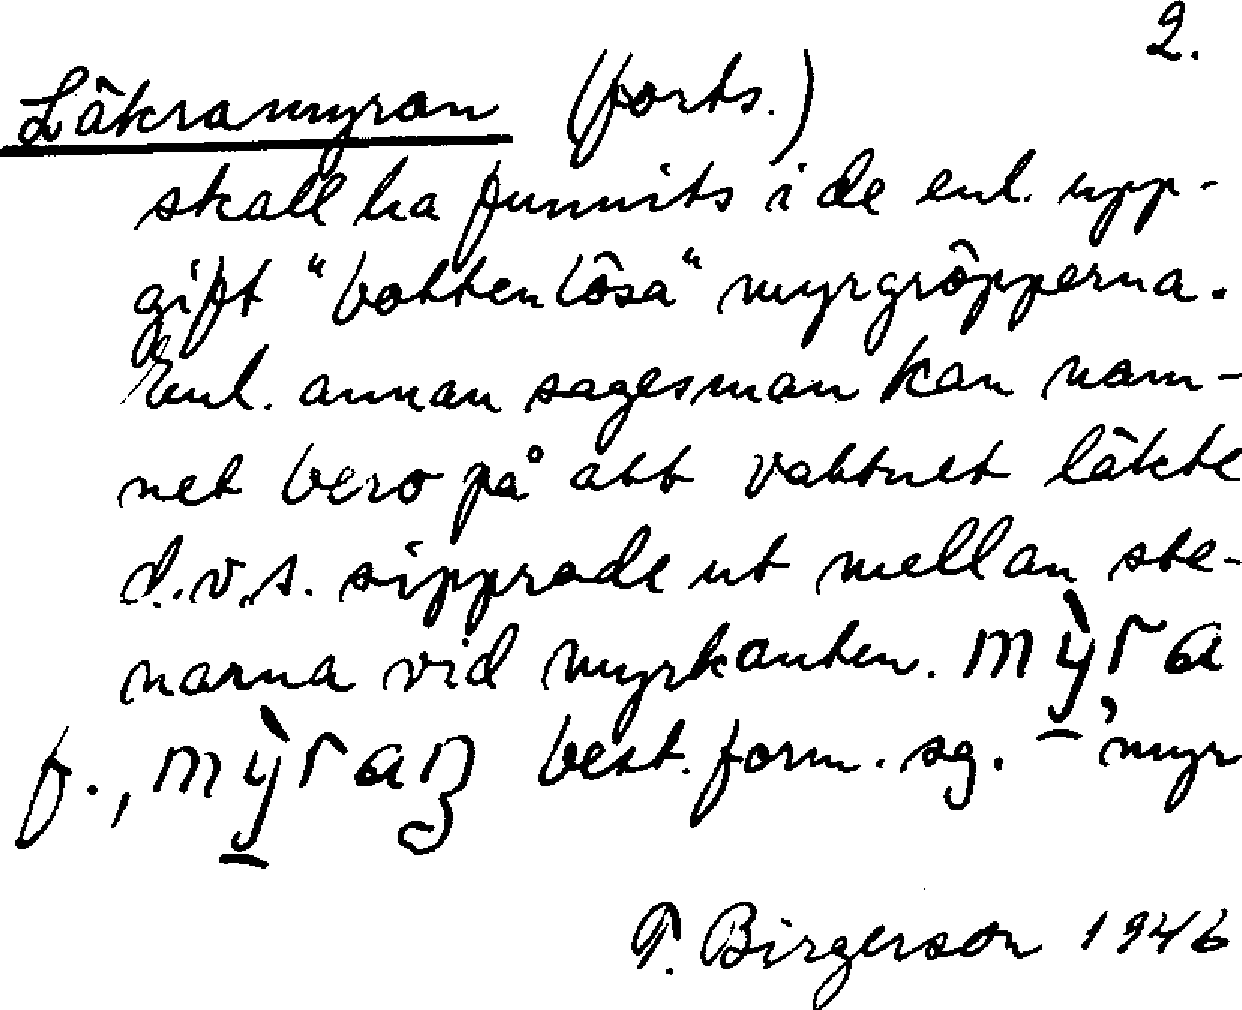 2.
Läkramyran (forts.)
skall ha funnits i de enl. upp-
gift "bottenlösa" myrgröpperna.
Enl. annan sagesman kan nam-
net bero på att vattnet läkte
d.v.s. sipprade ut mellan ste-
narna vid myrkanten. mỳ̱ra
f., mỳ̱raṇ best. form. sg. ’myr
T. Birgerson 1946